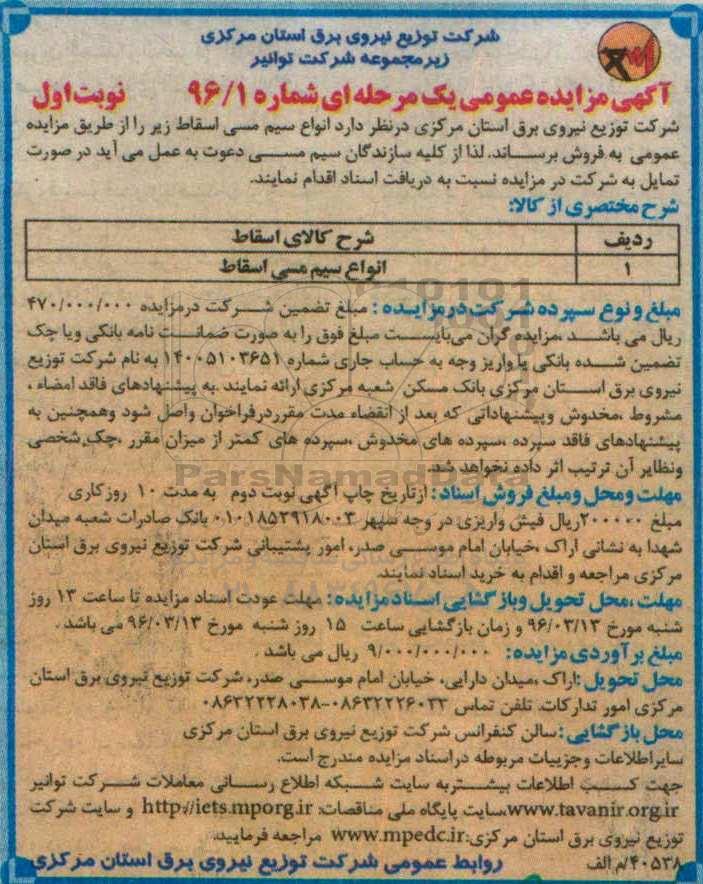 شرکت توزیع نیروی برق استان مرکزی
زیرمجموعه شرکت توانیر
آگهی مزایده عمومی یک مرحله ای شماره ۹۶/۱ نوبت اول
شرکت توزیع نیروی برق استان مرکزی درنظر دارد انواع سیم مسی اسقاط زیر را از طریق مزایده
عمومی به فروش برساند. لذا از کلیه سازندگان سیم مسی دعوت به عمل می آید در صورت
تمایل به شرکت در مزایده نسبت به دریافت اسناد اقدام نمایند.
شرح مختصری از کالا:
ردیف شرح کالای اسقاط
۱ انواع سیم مسی اسقاط
مبلغ و نوع سپرده شرکت درمزایده : مبلغ تضمین شرکت درمزایده ۴۷۰/۰۰۰/۰۰۰
ریال می باشد .مزایده گران می‌بایست مبلغ فوق را به صورت ضمانت نامه بانکی ویا چک
تضمین شده بانکی یا واریز وجه به حساب جاری شماره ۱۴۰۰۵۱۰۳۶۵۱ به نام شرکت توزیع
نیروی برق استان مرکزی بانک مسکن شعبه مرکزی ارائه نمایند .به پیشنهادهای فاقد امضاء ،
مشروط ،مخدوش وپیشنهاداتی که بعد از انقضاء مدت مقرردرفراخوان واصل شود وهمچنین به
پیشنهادهای فاقد سپرده ،سپرده های مخدوش ،سپرده های کمتر از میزان مقرر ،چک شخصی
ونظایر آن ترتیب اثر داده نخواهد شد.
ParsNamadData
مهلت ومحل ومبلغ فروش اسناد : ازتاریخ چاپ آگهی نوبت دوم به مدت ۱۰ روزکاری
مبلغ ۲۰۰۰۰۰ریال فیش واریزی در وجه سپهر ۰۱۰۱۸۵۲۹۱۸۰۰۳ بانک صادرات شعبه میدان
شهدا به نشانی اراک ،خیابان امام موسی صدر، امور پشتیبانی شرکت توزیع نیروی برق استان
مرکزی مراجعه و اقدام به خرید اسناد نمایند.
مهلت ،محل تحویل وبازگشایی اسنادمزایده: مهلت عودت اسناد مزایده تا ساعت ۱۳ روز
شنبه مورخ ۹۶/۰۳/۱۳ و زمان بازگشایی ساعت ۱۵ روز شنبه مورخ ۹۶/۰۳/۱۳ می باشد .
مبلغ برآوردی مزایده: ۹/۰۰۰/۰۰۰/۰۰۰ ریال می باشد .
محل تحویل :اراک ،میدان دارایی، خیابان امام موسی صدر، شرکت توزیع نیروی برق استان
مرکزی امور تدارکات. تلفن تماس ۰۸۶۳۲۲۲۶۰۳۳-۰۸۶۳۲۲۲۸۰۳۸
محل بازگشایی :سالن کنفرانس شرکت توزیع نیروی برق استان مرکزی
سایراطلاعات وجزییات مربوطه دراسناد مزایده مندرج است.
جهت کسب اطلاعات بیشتربه سایت شبکه اطلاع رسانی معاملات شرکت توانیر
www.tavanir.org.ir،سایت پایگاه ملی مناقصات: http://iets.mporg.ir و سایت شرکت
توزیع نیروی برق استان مرکزی:www.mpedc.ir مراجعه فرمایید.
۴۰۵۳۸/م الف روابط عمومی شرکت توزیع نیروی برق استان مرکزی